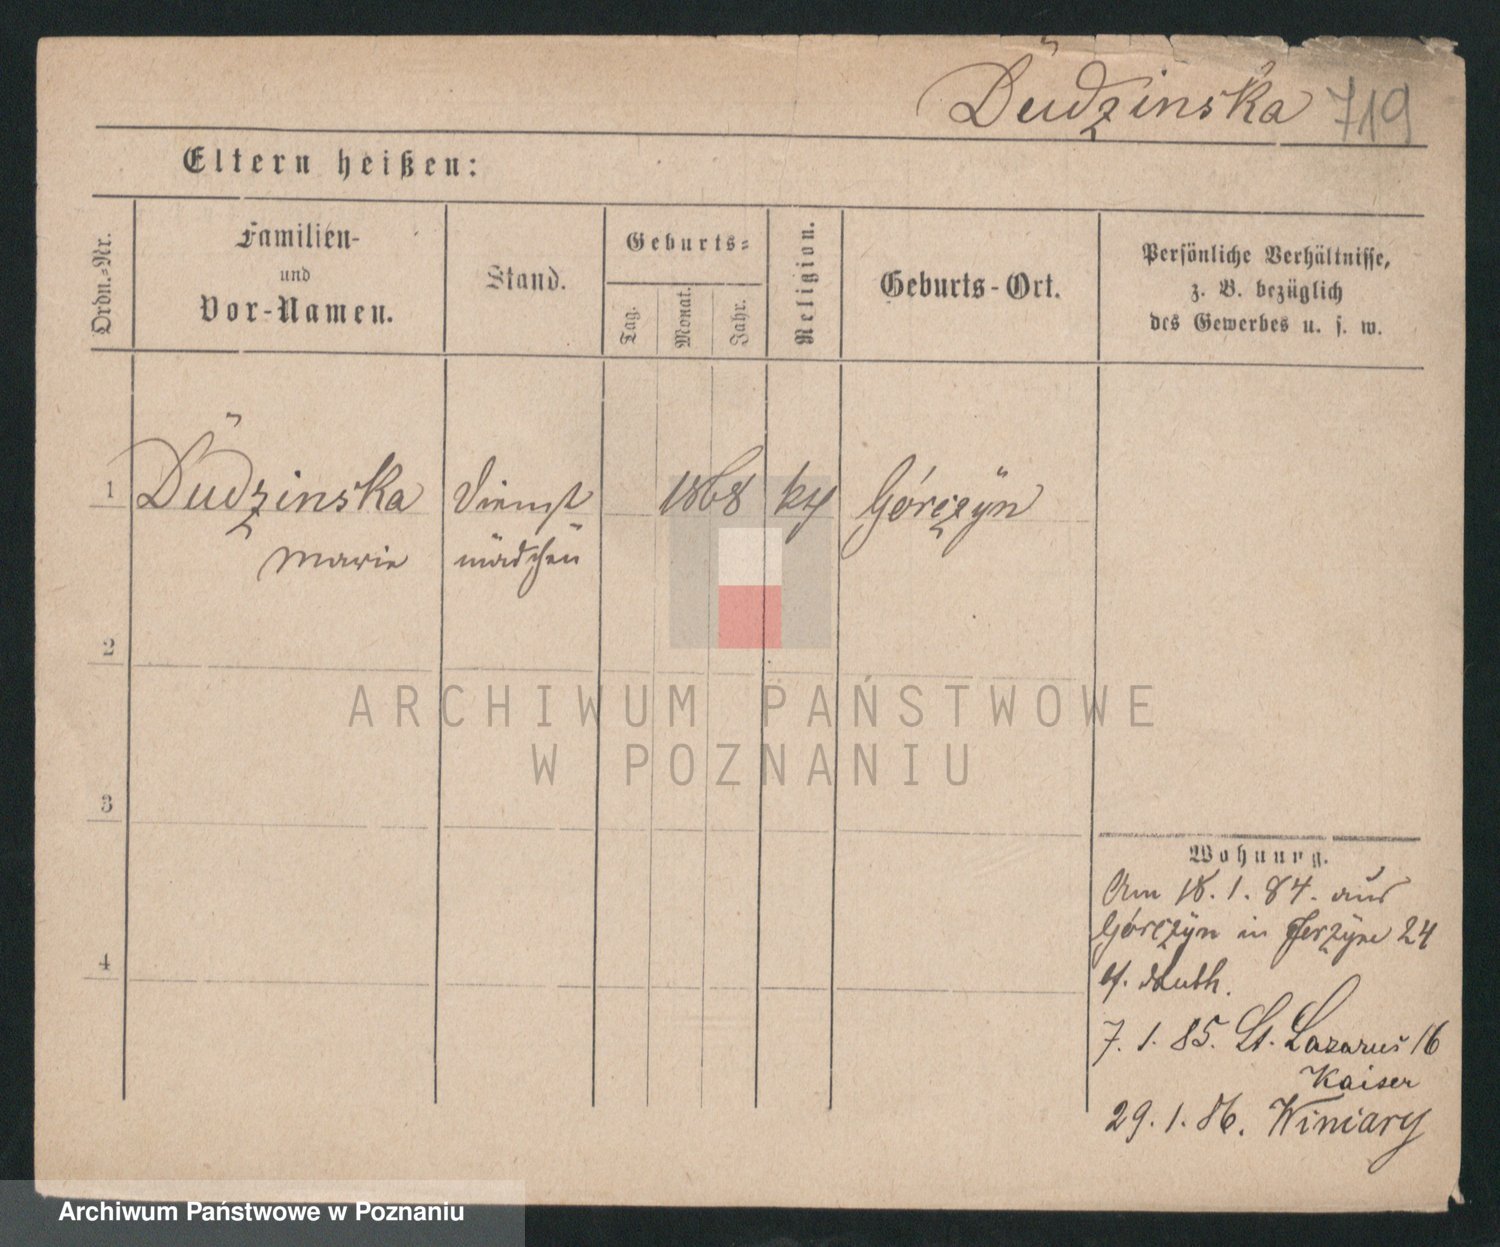 Dudzinska 719
Eltern heißen:
Ordn.=Nr.
Familien-
und
Vor-Namen.
Stand.
Geburts=
Tag.
Monat.
Jahr.
Religion.
Geburts-Ort.
Persönliche Verhältnisse,
z. B. bezüglich
des Gewerbes u. s. w.
1 Dudzinska Dienst 1868 kth Górczyn
Marie mädchen
2
ARCHIWUM PAŃSTWOWE
W POZNANIU
3
Wohnung.
Am 18.1.84. aus
Górczyn in Jerzyce 24
4
7.1.85. St. Lazarus 16
Kaiser
29.1.86. Winiary
Archiwum Państwowe w Poznaniu